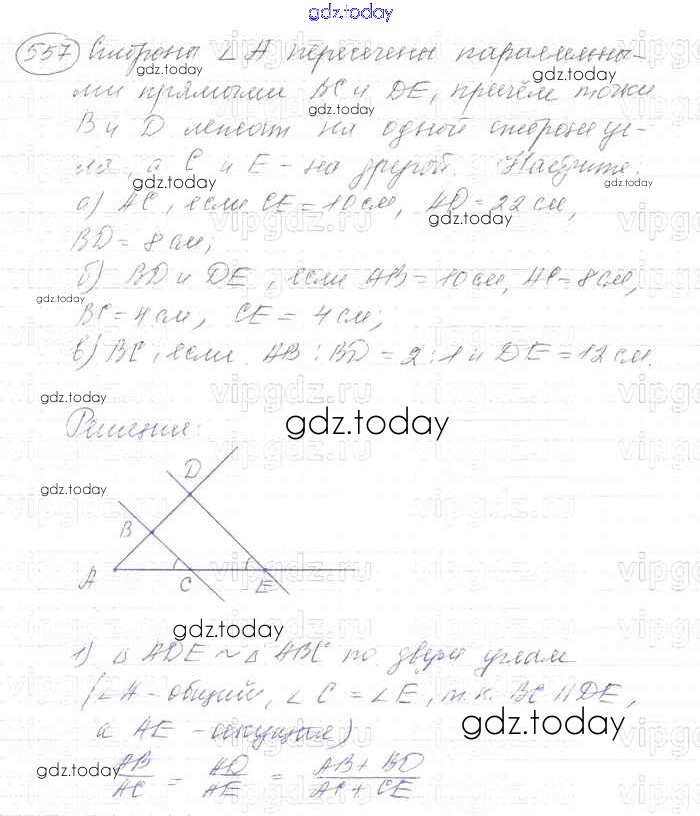 gdz.today
557 Стороны ∠A пересечены параллельны-
ми прямыми BC и DE, причём точки
B и D лежат на одной стороне уг-
ла, а C и E - на другой. Найдите:
а) AC, если CE = 10 см, AD = 22 см,
BD = 8 см;
б) BD и DE, если AB = 10 см, AC = 8 см,
BC = 4 см, CE = 4 см;
в) BC, если AB : BD = 2 : 1 и DE = 12 см.
Решение:
gdz.today
D
B
A
C
E
gdz.today
1) △ADE ~ △ABC по двум углам
(∠A - общий, ∠C = ∠E, т.к. BC || DE,
а AE - секущая)
gdz.today
AB/AC = AD/AE = AB + BD/AC + CE